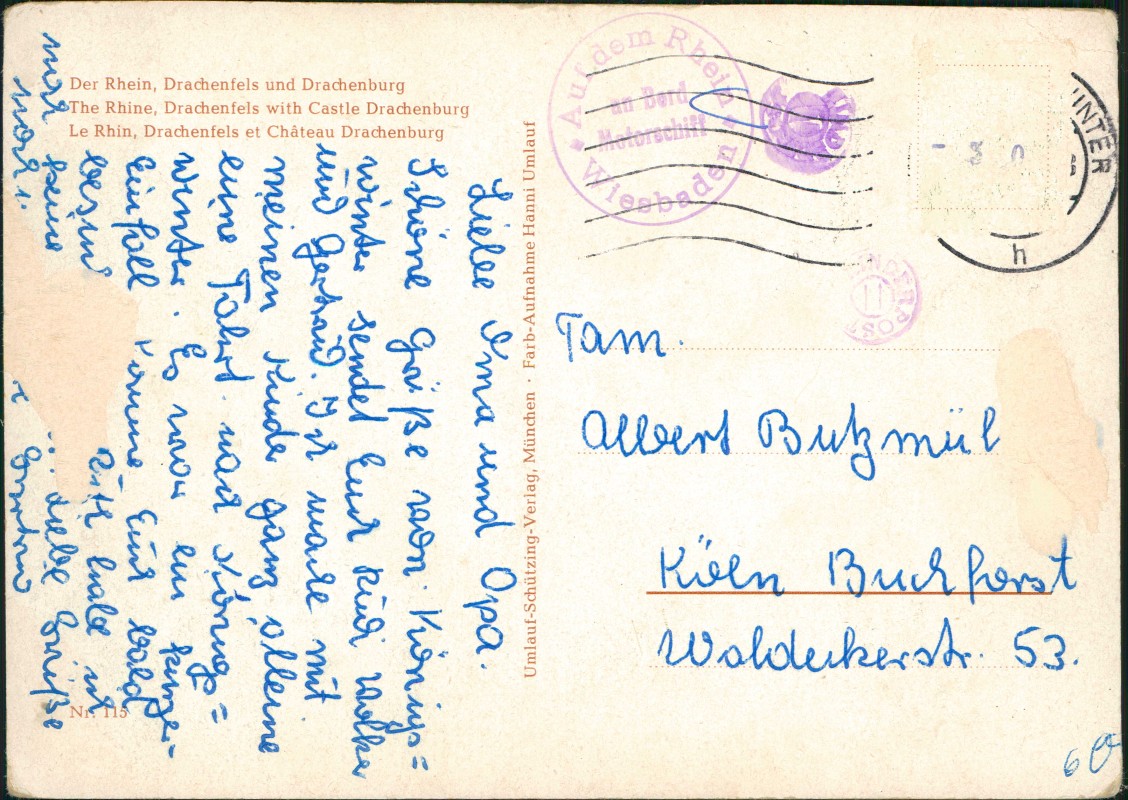 Der Rhein, Drachenfels und Drachenburg
The Rhine, Drachenfels with Castle Drachenburg
Le Rhin, Drachenfels et Château Drachenburg
Liebe Oma und Opa.
Schöne Grüße von Königs=
winter sendet Euch
und Gertrud. Ich mache mit
meinen Kinder ganz alleine
eine Fahrt nach Königs=
winter. Es war ein kurzer
Einfall Komme Euch bald
besuchen
keine
liebe Grüße
Nr. 115
Umlauf-Schützing-Verlag, München · Farb-Aufnahme Hanni Umlauf
Auf dem Rhein
an Bord
Motorschiff
Wiesbaden
INTER
8
h
11
Fam.
Albert Butzmül
Köln Buchforst
Waldeckerstr. 53.
60